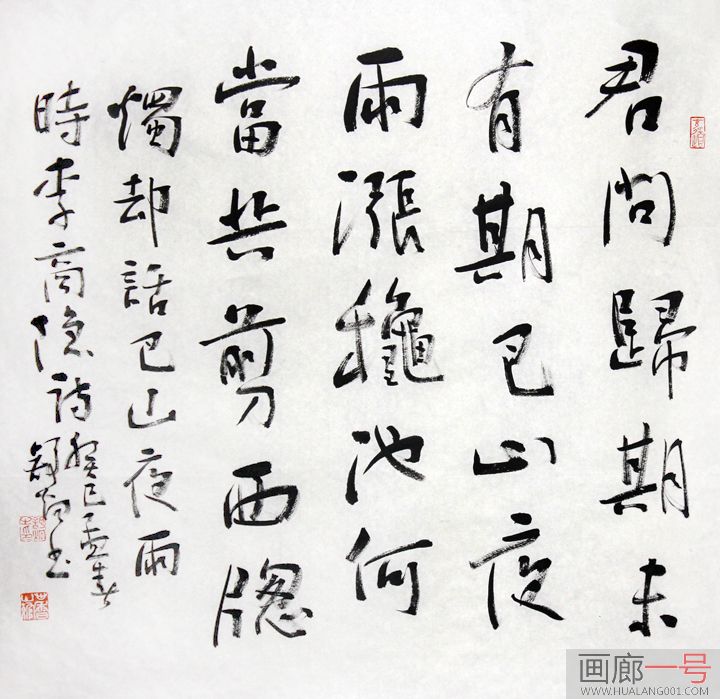 君問歸期未
有期巴山夜
雨漲穐池何
當共剪西牕
燭却話巴山夜雨
時李商隐詩癸巳孟春
书
画廊一号
WWW.HUALANG001.COM